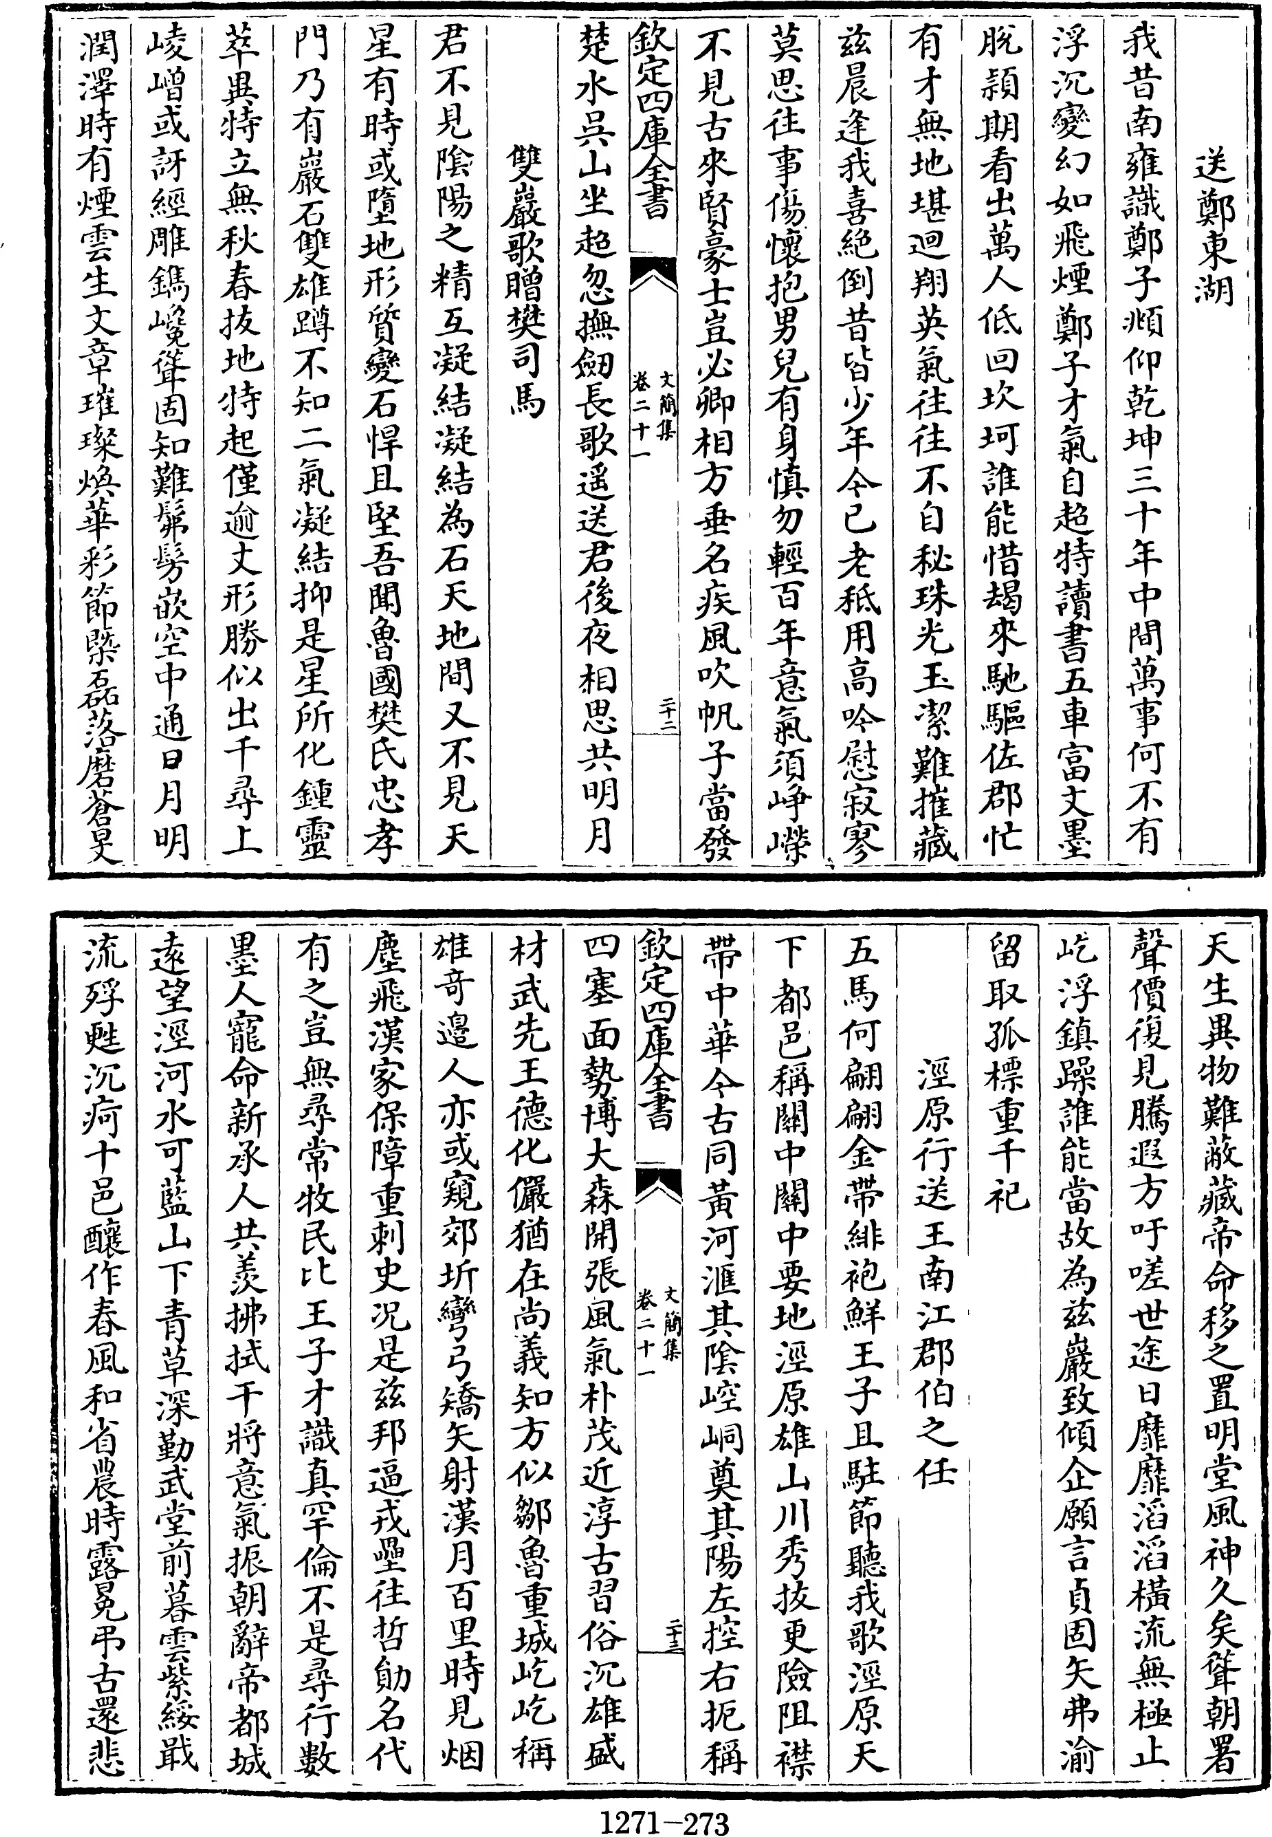 送鄭東湖
我昔南雍識鄭子頫仰乾坤三十年中間萬事何不有
浮沉變幻如飛煙鄭子才氣自超特讀書五車富文墨
脫穎期看出萬人低回坎坷誰能惜朅來馳驅佐郡忙
有才無地堪迴翔英氣往往不自秘珠光玉潔難摧藏
兹晨逢我喜絶倒昔皆少年今已老秪用高吟慰寂寥
莫思往事傷懷抱男兒有身慎勿輕百年意氣須崢嶸
不見古來賢豪士豈必卿相方垂名疾風吹帆子當發
欽定四庫全書
文簡集
卷二十一
二十二
楚水吳山坐超忽撫劒長歌遥送君後夜相思共明月
雙巖歌贈樊司馬
君不見陰陽之精互凝結凝結為石天地間又不見天
星有時或墮地形質變石悍且堅吾聞魯國樊氏忠孝
門乃有巖石雙雄蹲不知二氣凝結抑是星所化鍾靈
萃異特立無秋春拔地特起僅逾丈形勝似出千尋上
崚嶒或訝經雕鐫巉聳固知難髴髣嵌空中通日月明
潤澤時有煙雲生文章璀璨煥華彩節槩磊落磨蒼旻
天生異物難蔽藏帝命移之置明堂風神久矣聳朝署
聲價復見騰遐方吁嗟世途日靡靡滔滔橫流無極止
屹浮鎮躁誰能當故為兹巖致傾企願言貞固矢弗渝
留取孤標重千祀
涇原行送王南江郡伯之任
五馬何翩翩金帶緋袍鮮王子且駐節聽我歌涇原天
下都邑稱關中關中要地涇原雄山川秀拔更險阻襟
帶中華今古同黃河滙其陰崆峒奠其陽左控右扼稱
欽定四庫全書
文簡集
卷二十一
二十三
四塞面勢博大森開張風氣朴茂近淳古習俗沉雄盛
材武先王德化儼猶在尚義知方似鄒魯重城屹屹稱
雄竒邉人亦或窺郊圻彎弓矯矢射漢月百里時見烟
塵飛漢家保障重刺史况是兹邦逼戎壘往哲勛名代
有之豈無尋常牧民比王子才識真罕倫不是尋行數
墨人寵命新承人共羨拂拭干將意氣振朝辭帝都城
遠望涇河水可藍山下青草深勤武堂前暮雲紫綏戢
流殍甦沉疴十邑釀作春風和省農時露冕弔古還悲
1271-273